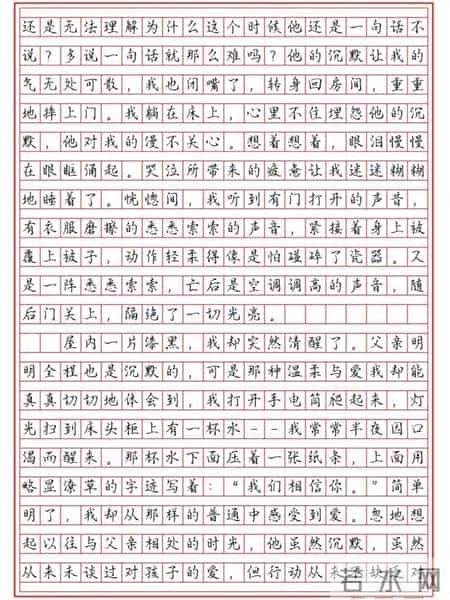 还是无法理解为什么这个时候他还是一句话不
说？多说一句话就那么难吗？他的沉默让我的
气无处可散，我也闭嘴了，转身回房间，重重
地摔上门。我躺在床上，心里不住埋怨他的沉
默，他对我的漫不关心。想着想着，眼泪慢慢
在眼眶涌起。哭泣所带来的疲惫让我迷迷糊糊
地睡着了。恍惚间，我听到有门打开的声音，
有衣服磨擦的悉悉索索的声音，紧接着身上被
覆上被子，动作轻柔得像是怕碰碎了瓷器。又
是一阵悉悉索索，亡后是空调调高的声音，随
后门关上，隔绝了一切光亮。
屋内一片漆黑，我却突然清醒了。父亲明
明全程也是沉默的，可是那种温柔与爱我却能
真真切切地体会到，我打开手电筒爬起来，灯
光扫到床头柜上有一杯水--我常常半夜因口
渴而醒来。那杯水下面压着一张纸条，上面用
略显潦草的字迹写着：“我们相信你。”简单
明了，我却从那样的普通中感受到爱。忽地想
起以往与父亲相处的时光，他虽然沉默，虽然
从来未谈过对孩子的爱，但行动从来
若水网